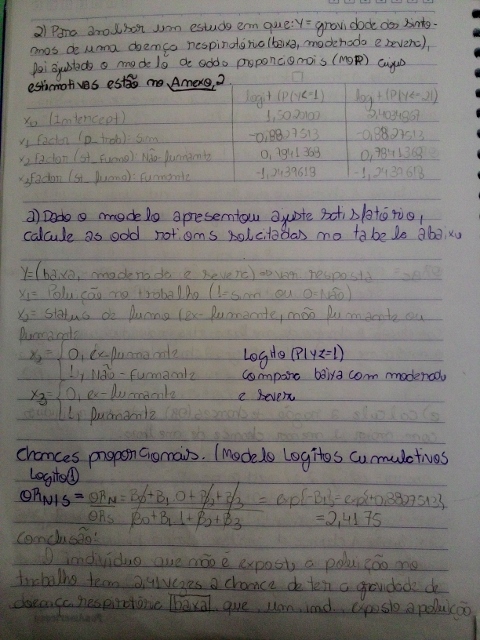 2) Para analisar um estudo em que: Y = gravidade dos sinto-
mas de uma doença respiratória (baixa, moderada e severa),
foi ajustado o modelo de odds proporcionais (MOP) cujas
estimativas estão no Anexo 2.
logit (P(Y<=1) logit (P(Y<=2))
x0 (Intercept) 1,5022700
x1 factor (p_trab): sim -0,8827513 -0,8827513
x2 factor (st_fumo): Não-fumante 0,7841368 0,7841368
x3 factor (st_fumo): fumante -1,2439618 -1,2439618
a) Dado o modelo apresentou ajuste satisfatório,
calcule as odd rations solicitadas na tabela abaixo
Y = (baixa, moderada e severa) → var resposta
x1 = Poluição no trabalho (1=sim ou 0=Não)
x2 = status de fumo (ex-fumante, não fumante ou
fumante
x2 = 0, ex-fumante Logito (P(Y<=1)
1, Não-Fumante compara baixa com moderada
x3 = 0, ex-fumante e severa
1, fumante
Chances proporcionais. (Modelo Logitos cumulativos
Logito ①
ORN|S = ORN = β0+β1 0+β2+β3 = exp{-β1} = exp{+0,8827513}
ORS β0+β1 1+β2+β3 = 2,4175
Conclusão:
O indivíduo que não é exposto a poluição no
trabalho tem 2,41 vezes a chance de ter a gravidade de
doença respiratória baixa que um ind. exposto a poluição